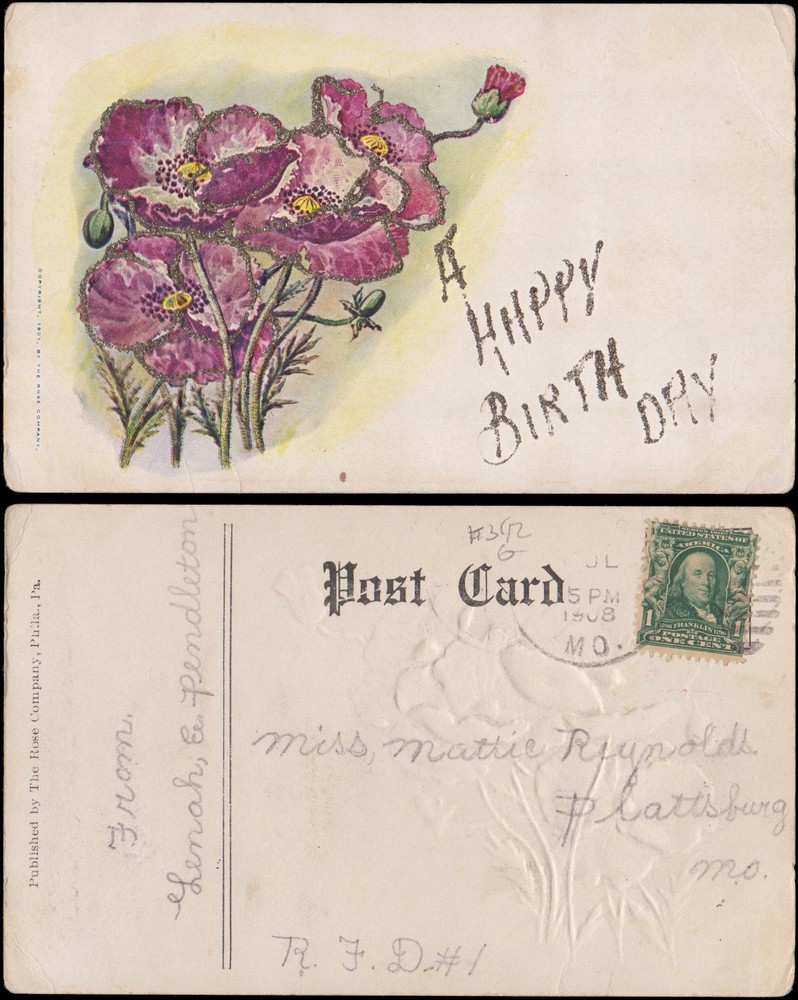 A
HAPPY
BIRTH
DAY
COPYRIGHT, 1907, BY THE ROSE COMPANY.
Post Card
JL
5 PM
1908
MO.
UNITED STATES OF
AMERICA
1 FRANKLIN 1
POSTAGE
ONE CENT
Miss, Mattie Reynolds.
Plattsburg
Mo.
R. F. D. #1
From.
Lenah, E. Pendleton
Published by The Rose Company, Phila., Pa.